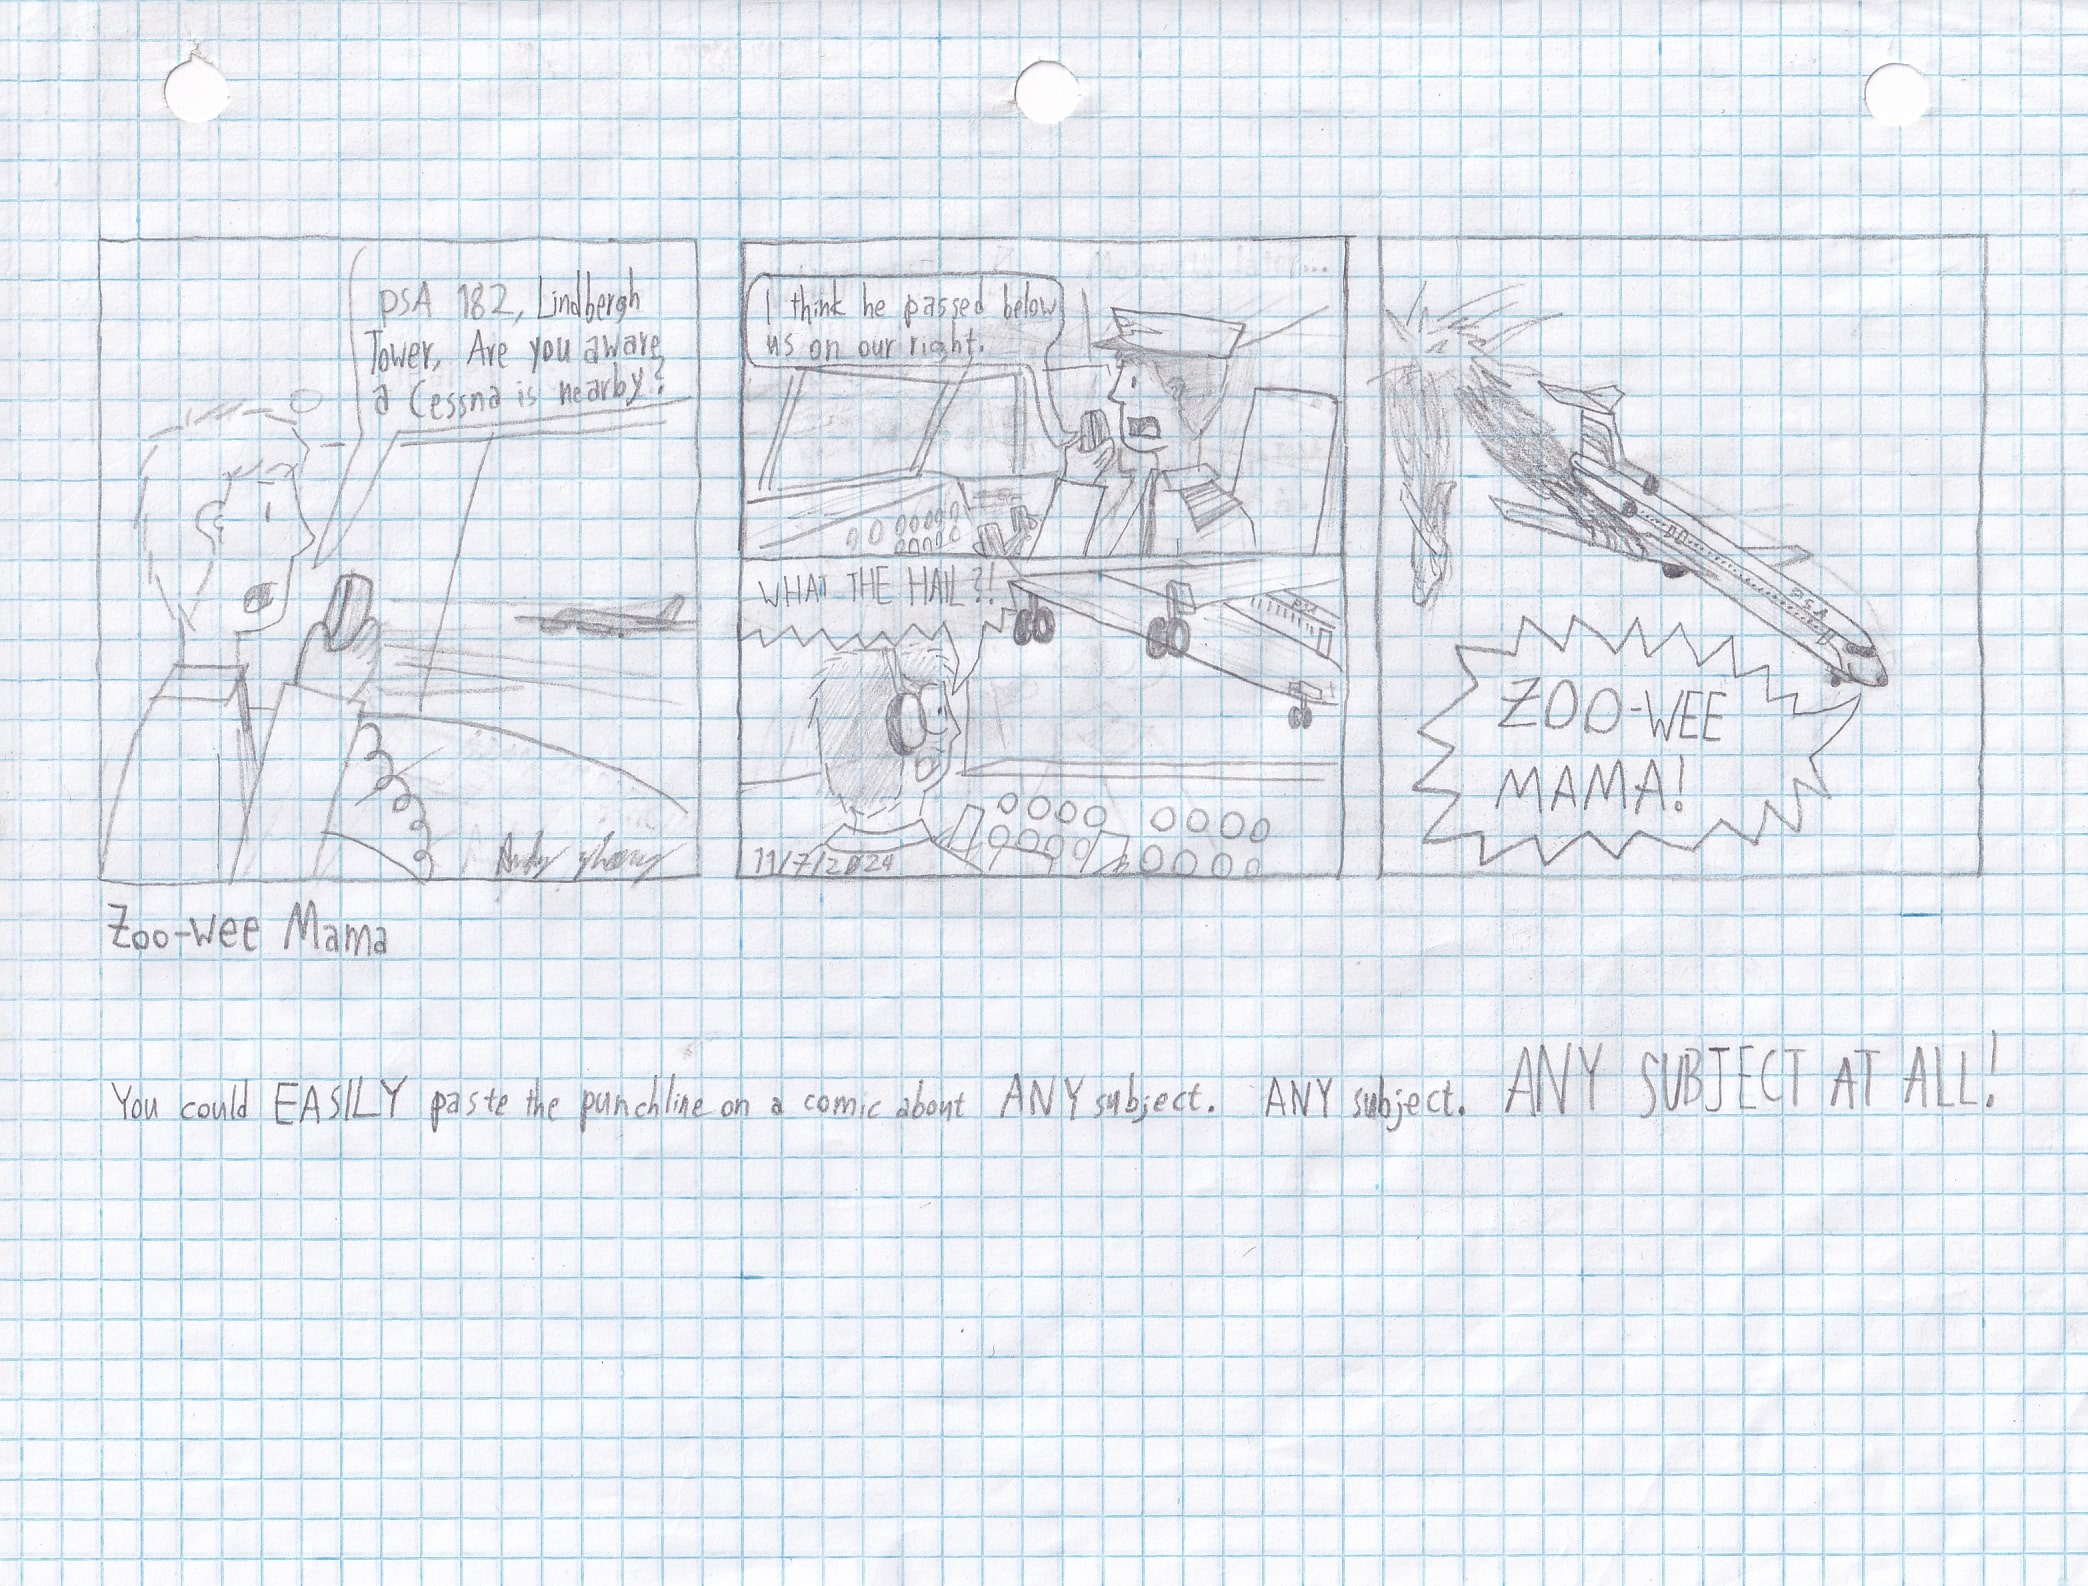 PSA 182, Lindbergh
Tower, Are you aware
a Cessna is nearby?
I think he passed below
us on our right.
WHAT THE HAIL?!
PSA
11/7/2024
PSA
ZOO-WEE
MAMA!
Zoo-Wee Mama
You could EASILY paste the punchline on a comic about ANY subject. ANY subject. ANY SUBJECT AT ALL!